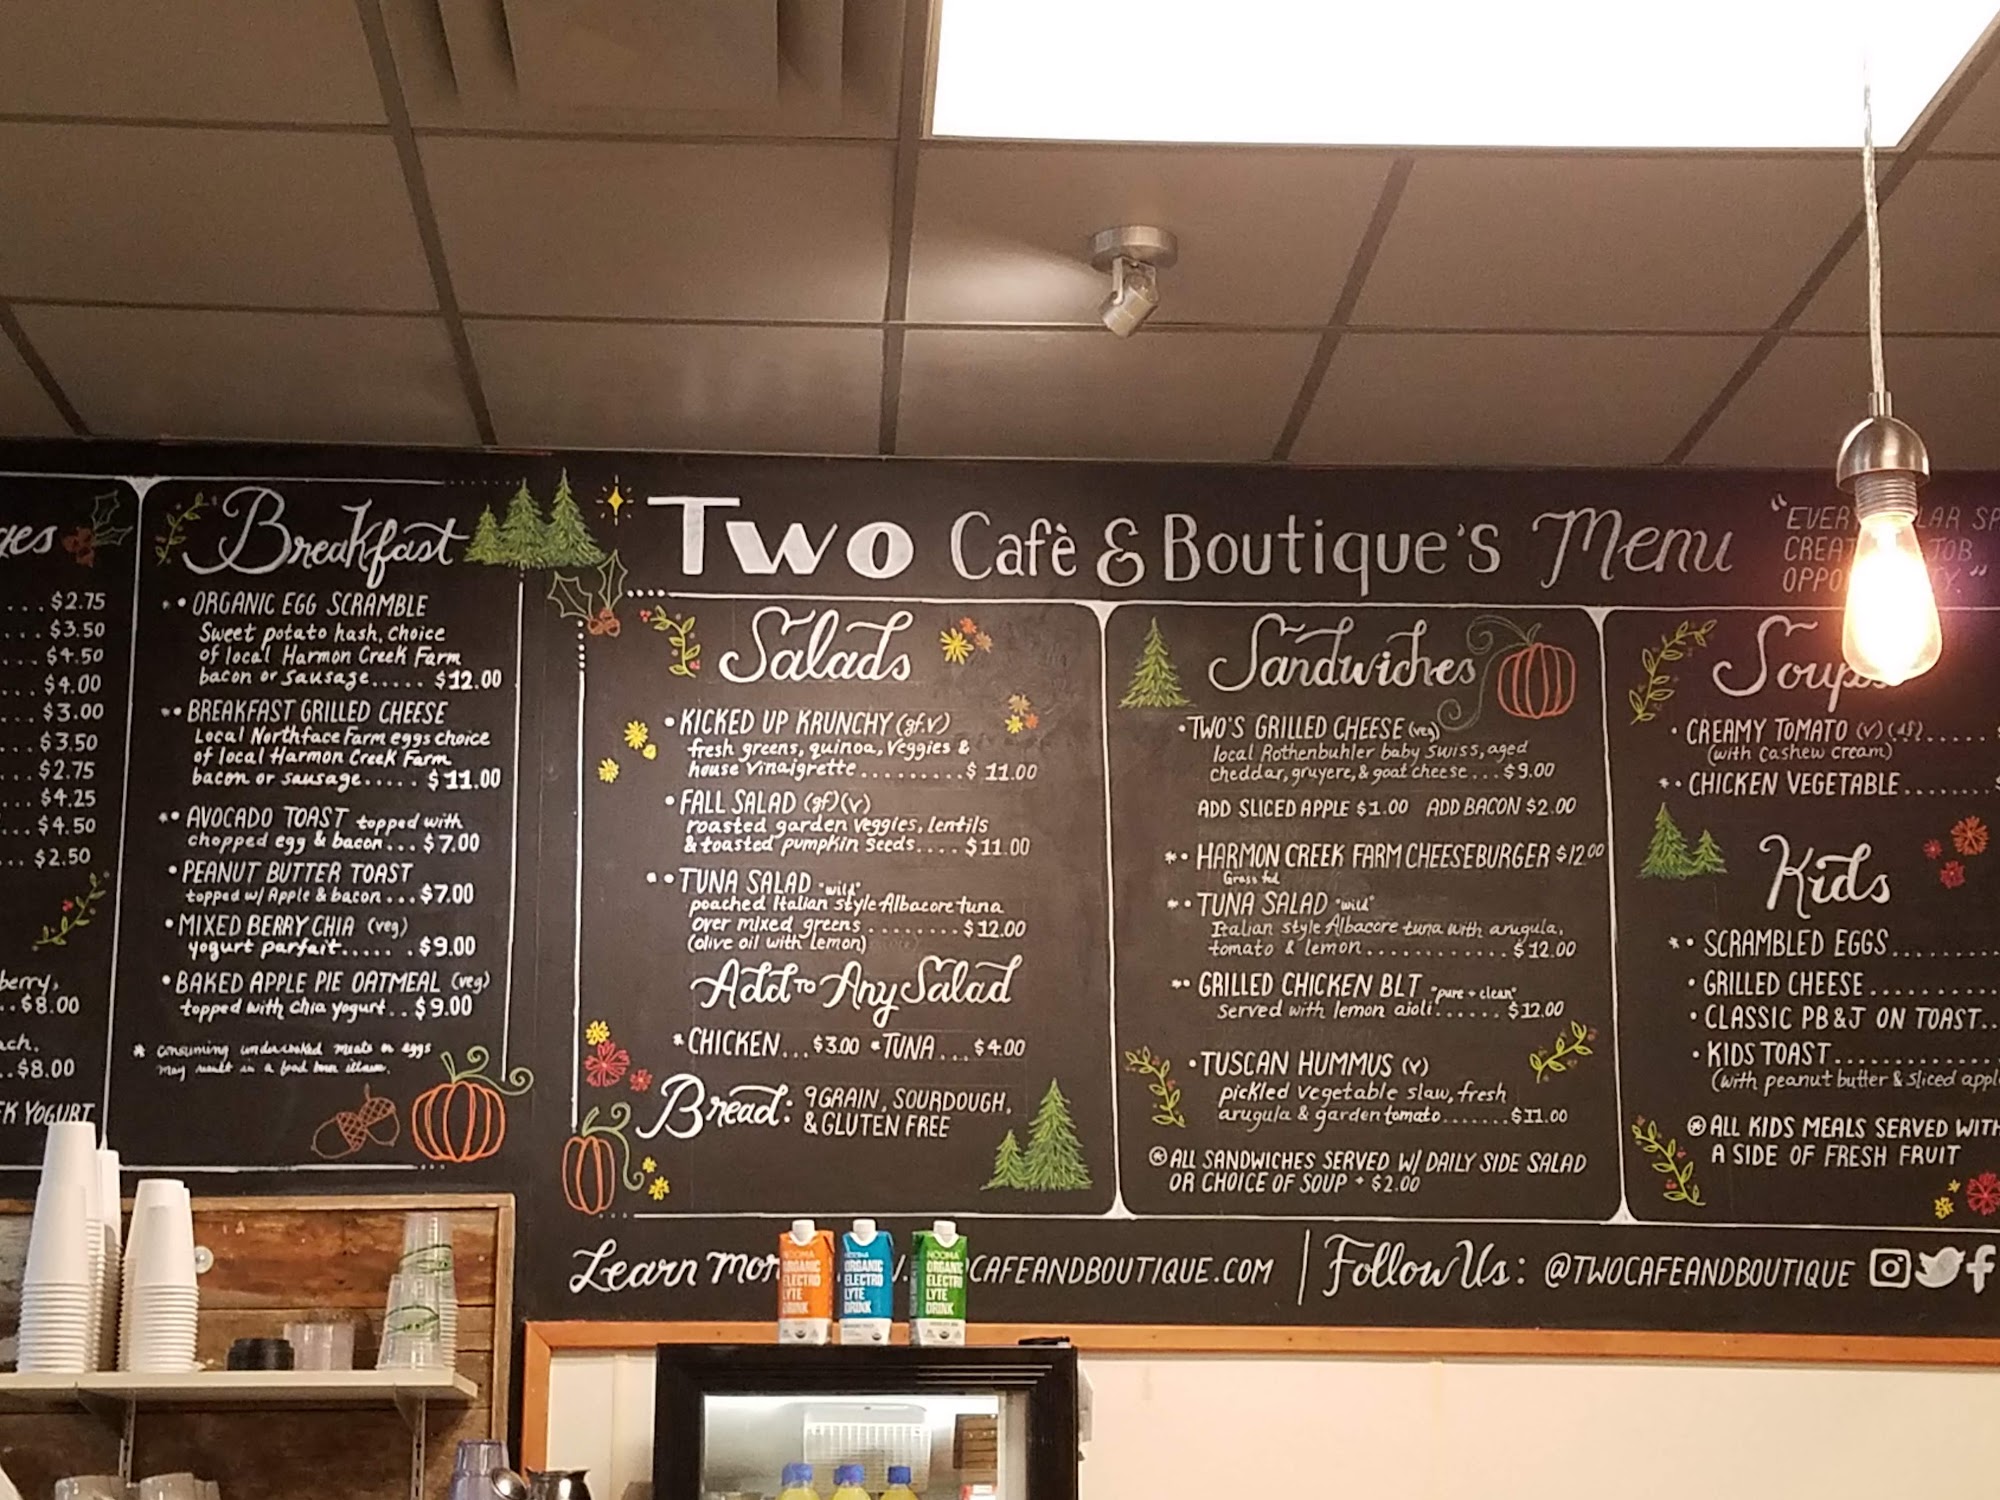 ges
... $2.75
... $3.50
... $4.50
... $4.00
... $3.00
... $3.50
... $2.75
... $4.25
... $4.50
... $2.50
berry,
.. $8.00
ach.
.. $8.00
EK YOGURT
Breakfast
* • ORGANIC EGG SCRAMBLE
Sweet potato hash, choice
of local Harmon Creek Farm
bacon or sausage..... $12.00
* • BREAKFAST GRILLED CHEESE
Local Northface Farm eggs choice
of local Harmon Creek Farm
bacon or sausage..... $11.00
* • AVOCADO TOAST topped with
chopped egg & bacon... $7.00
• PEANUT BUTTER TOAST
topped w/ Apple & bacon... $7.00
• MIXED BERRY CHIA (veg)
yogurt parfait...... $9.00
• BAKED APPLE PIE OATMEAL (veg)
topped with chia yogurt.. $9.00
* consuming undercooked meats or eggs
may result in a food born illness.
Two Cafè & Boutique's Menu
Salads
• KICKED UP KRUNCHY (gf.v)
fresh greens, quinoa, Veggies &
house Vinaigrette......... $11.00
• FALL SALAD (gf)(v)
roasted garden veggies, lentils
& toasted pumpkin seeds.... $11.00
* • TUNA SALAD "wild"
poached Italian style Albacore tuna
over mixed greens........ $12.00
(olive oil with lemon)
Add to Any Salad
* CHICKEN... $3.00 * TUNA... $4.00
Bread: 9 GRAIN, SOURDOUGH,
& GLUTEN FREE
Sandwiches
• TWO'S GRILLED CHEESE (veg)
local Rothenbuhler baby swiss, aged
cheddar, gruyere, & goat cheese... $9.00
ADD SLICED APPLE $1.00 ADD BACON $2.00
* • HARMON CREEK FARM CHEESEBURGER $12.00
Grass fed
* • TUNA SALAD "wild"
Italian style Albacore tuna with arugula,
tomato & lemon............ $12.00
* • GRILLED CHICKEN BLT "pure + clean"
Served with lemon aioli...... $12.00
• TUSCAN HUMMUS (v)
pickled vegetable slaw, fresh
arugula & garden tomato....... $11.00
* ALL SANDWICHES SERVED W/ DAILY SIDE SALAD
OR CHOICE OF SOUP + $2.00
OPPO
Soups
• CREAMY TOMATO (v) (df).....
(with Cashew cream)
* • CHICKEN VEGETABLE.......
Kids
* • SCRAMBLED EGGS.........
• GRILLED CHEESE..........
• CLASSIC PB & J ON TOAST..
• KIDS TOAST.............
(with peanut butter & sliced appl
* ALL KIDS MEALS SERVED WITH
A SIDE OF FRESH FRUIT
Learn mor CAFEANDBOUTIQUE.COM | Follow Us: @TWOCAFEANDBOUTIQUE
NOOMA ORGANIC ELECTRO LYTE DRINK
NOOMA ORGANIC ELECTRO LYTE DRINK
NOOMA ORGANIC ELECTRO LYTE DRINK